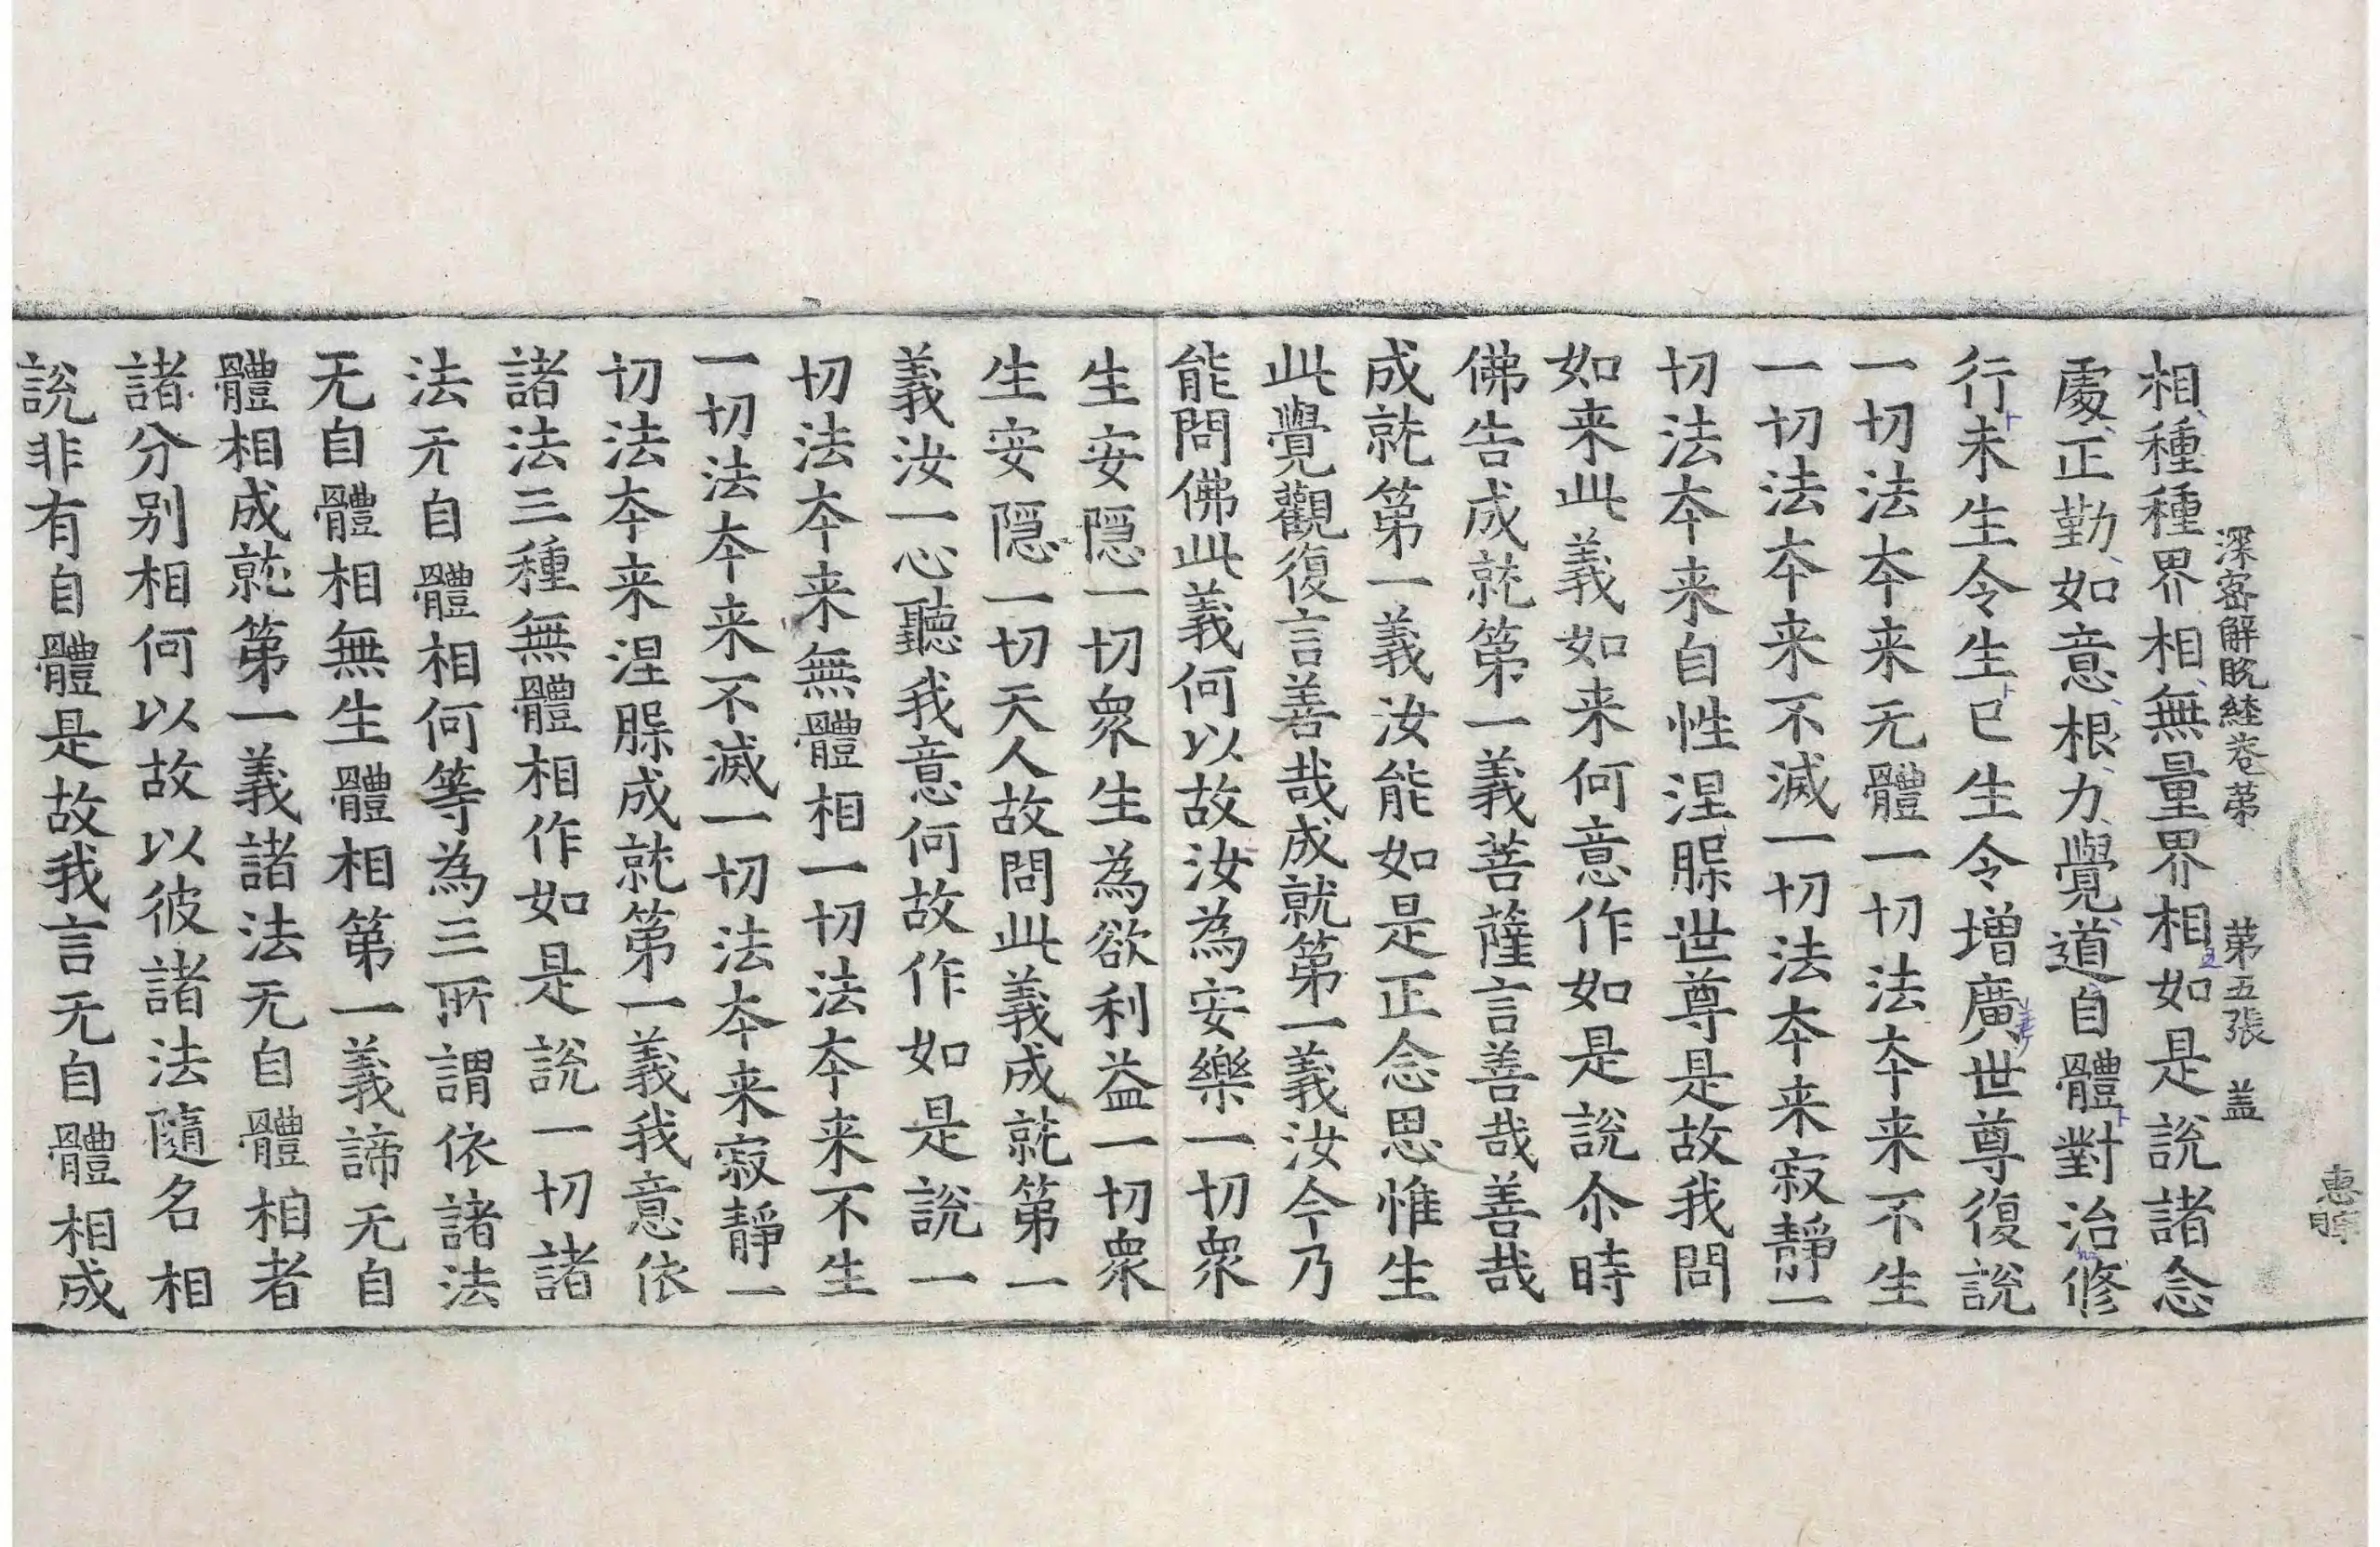 惠暉
深密解脫経卷第　第五張　盖
相種種界相無量界相如是說諸念
處正勤如意根力覺道自體對治修
行未生令生已生令增廣世尊復說
一切法本来无體一切法本来不生
一切法本来不滅一切法本来寂靜一
切法本来自性涅槃世尊是故我問
如来此義如来何意作如是說尒時
佛告成就第一義菩薩言善哉善哉
成就第一義汝能如是正念思惟生
此覺觀復言善哉成就第一義汝今乃
能問佛此義何以故汝為安樂一切衆
生安隱一切衆生為欲利益一切衆
生安隱一切天人故問此義成就第一
義汝一心聽我意何故作如是說一
切法本来無體相一切法本来不生
一切法本来不滅一切法本来寂靜一
切法本来涅槃成就第一義我意依
諸法三種無體相作如是說一切諸
法无自體相何等為三所謂依諸法
无自體相無生體相第一義諦无自
體相成就第一義諸法无自體相者
諸分別相何以故以彼諸法隨名相
說非有自體是故我言无自體相成